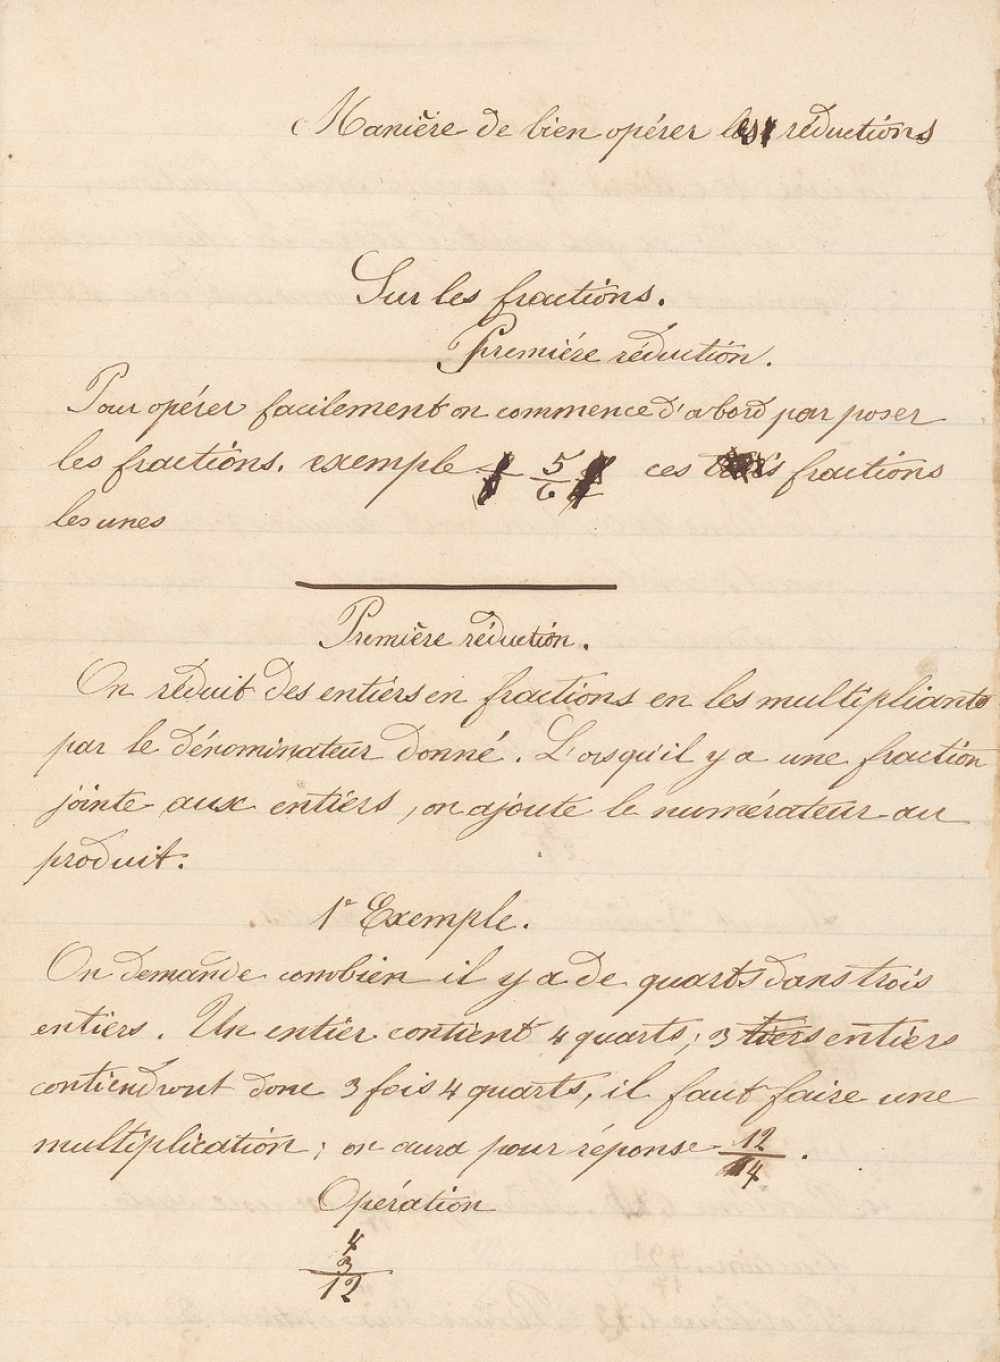 Manière de bien opérer les réductions
Sur les fractions.
Premiére réduction.
Pour opérer facilement on commence d'abord par poser
les fractions. exemple 5/6 ces trois fractions
les unes
Première réduction.
On réduit des entiers en fractions en les multipliants
par le dénominateur donné. Lorsqu'il y a une fraction
jointe aux entiers, on ajoute le numérateur au
produit.
1e Exemple.
On demande combien il y a de quarts dans trois
entiers. Un entier contient 4 quarts; 3 tiers entiers
contiendront donc 3 fois 4 quarts, il faut faire une
multiplication; on aura pour réponse 12/4.
Opération
4
3
12